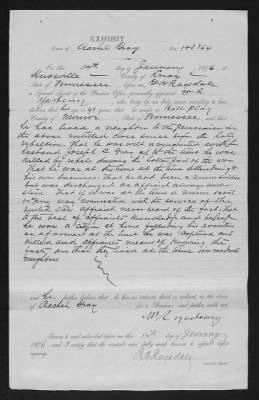 EXHIBIT
Case of Rachel Gray No. 143764
On this 14th day of January 1876, at
Knoxville County of Knox
State of Tennessee before me, G. W. Ragsdale
a Special Agent of the Pension Office, personally appeared
who, being by me duly sworn according to law,
deposes that he is years, that he resides at Ball Play
County of Monroe State of Tennessee
he has lived a neighbor to the pensioner in
the above entitled claim since before the late
rebellion. That he was well acquainted with her
husband Joseph G. Gray up to the time he was
killed by rebels during the latter part of the war
That he was at his home at the time attending to
his own business. That he had been a Union soldier
but was discharged as affiant always under-
stood. That if he was at the time a Union scout
or in any way connected with the service of the
United States affiant never heard of the fact, that
to the best of affiants knowledge and belief
he was a citizen at home following his avocation
as a farmer at the time he was captured and
killed and affiants means of knowing the
facts are that they lived at the time immediate
neighbors
and he further deposes that he has no interest, direct or indirect, in the claim
of Rachel Gray for a Pension, and further saith not.
Sworn to and subscribed before me this 14th day of January
1876, and I certify that the contents were fully made known to affiant before
signing.